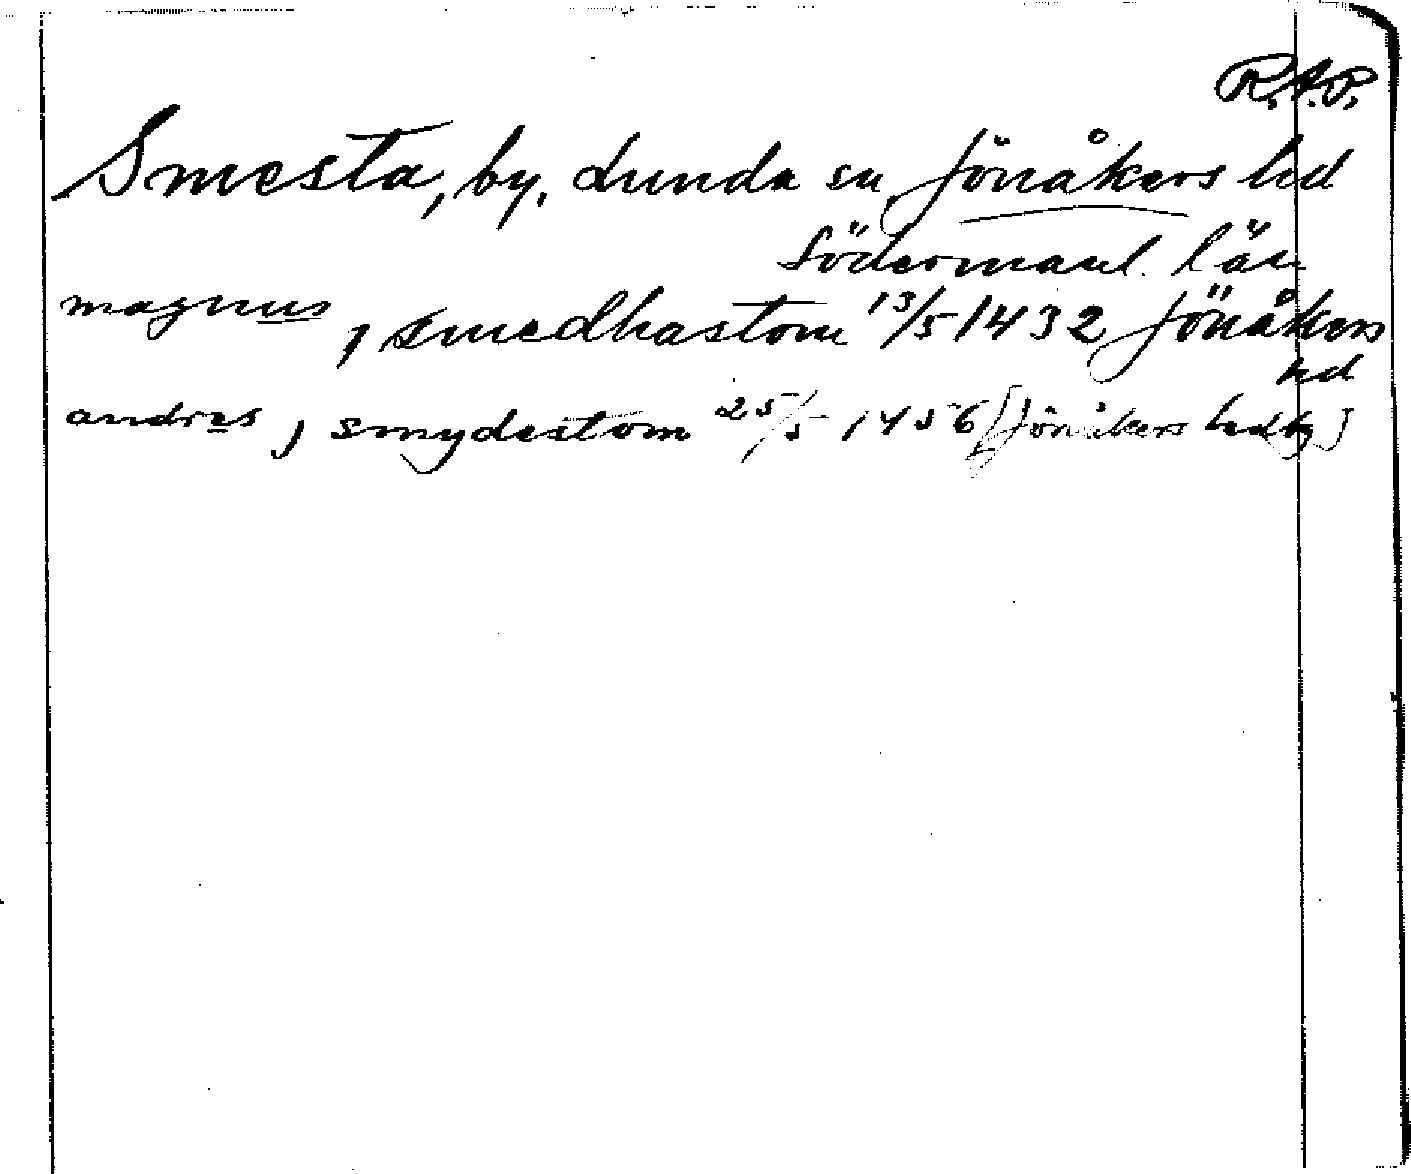 R.A.P.
Smesta, by, Lunda sn, Jönåkers hd
Södermanl. län
magnus, smedhastom 13/5 1432 Jönåkers
hd
andres, smydestom 25/5 1456 [Jönåkers hd]